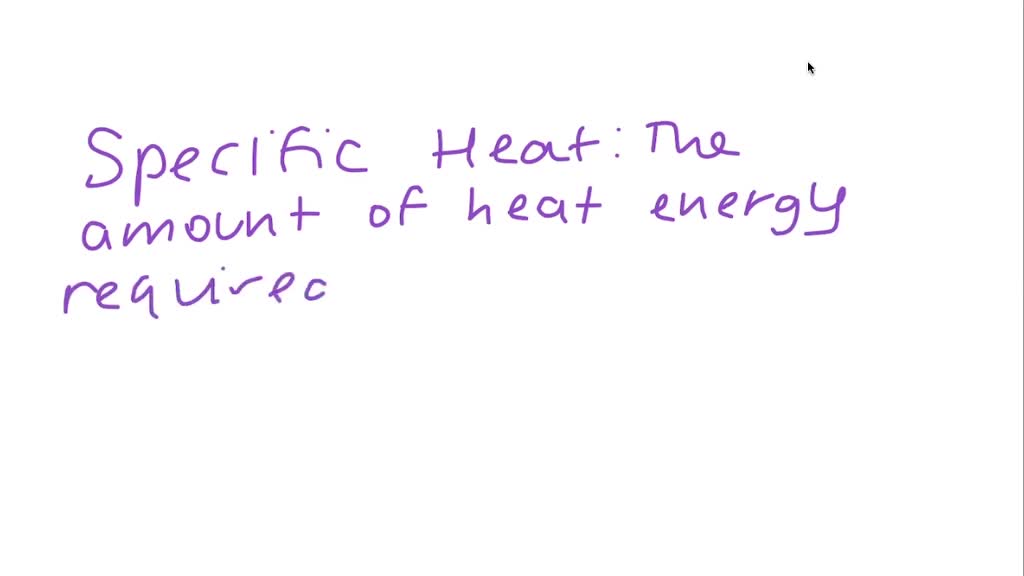 Specific Heat: The
amount of heat energy
requirec